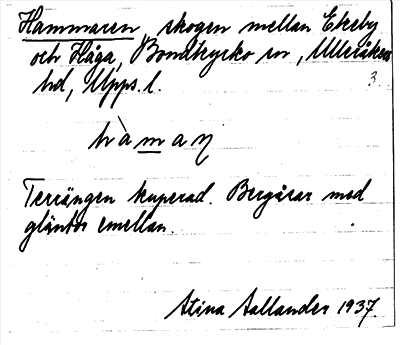 Hammaren, skogen mellan Ekeby
och Håga, Bondkyrko sn, Ulleråkers
hd, Upps. l. 3.
hàmaη
Terrängen kuperad. Bergåsar med
gläntor emellan.
Stina Sallander 1937